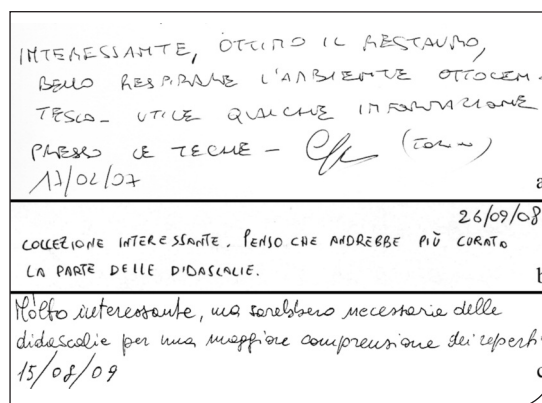 INTERESSANTE, OTTIMO IL RESTAURO,
BELLO RESPIRARE L'AMBIENTE OTTOCEN-
TESCO- UTILE QUALCHE INFORMAZIONE
PRESSO LE TECHE - (TORINO)
17/02/07
a
26/09/08
COLLEZIONE INTERESSANTE. PENSO CHE ANDREBBE PIÙ CURATA
LA PARTE DELLE DIDASCALIE.
b
Molto interessante, ma sarebbero necessarie delle
didascalie per una maggiore comprensione dei reperti
15/08/09
c